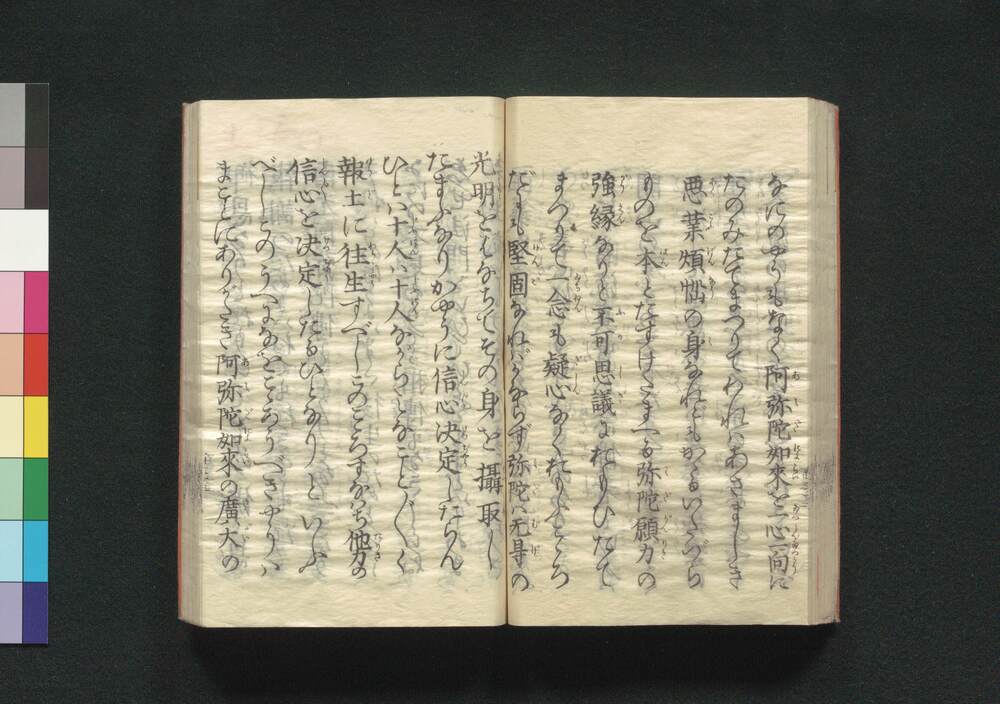 なにのやうもなく阿弥陀如來を一心一向に
たのみたてまつりてわれはあさましき
悪業煩悩の身なれどもかゝるいたづら
ものを本とたすけたまへる弥陀願力の
強縁なりと不可思議におもひたて
まつりて一念も疑心なくおもふこゝろ
だにも堅固なればかならず弥陀は无㝵の
光明をはなちてその身を攝取し
たまふなりかやうに信心決定したらん
ひとは十人は十人ながらみなことごとく
報土に徃生すべしこのこゝろすなはち他力の
信心を決定したるひとなりといふ
べしこのうへになをこゝろうべきやうは
まことにありがたき阿弥陀如來の廣大の